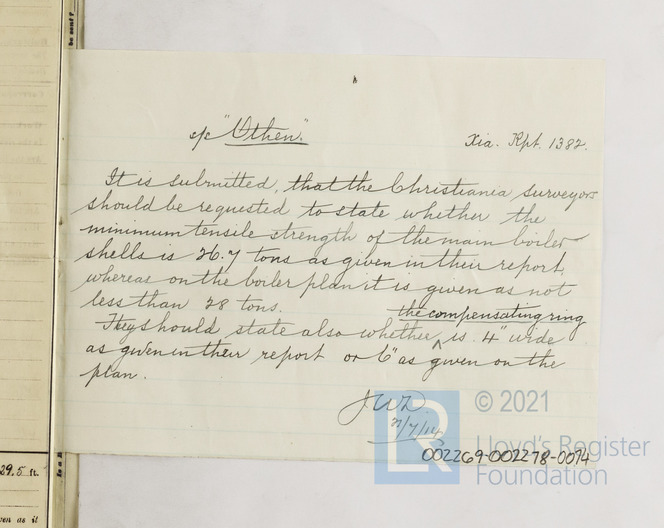 s/s "Othen"
Xia. Rpt. 1382.
It is submitted, that the Christiania surveyors
should be requested to state whether the
minimum tensile strength of the main boiler
shells is 26.7 tons as given in their report,
whereas on the boiler plan it is given as not
less than 28 tons.
They should state also whether ^ the compensating ring is 4" wide
as given in their report or 6" as given on the
plan.
7/14
002269-002278-0094
© 2021
LR
Lloyd's Register
Foundation
29.5 ft.
en as it
be sent?